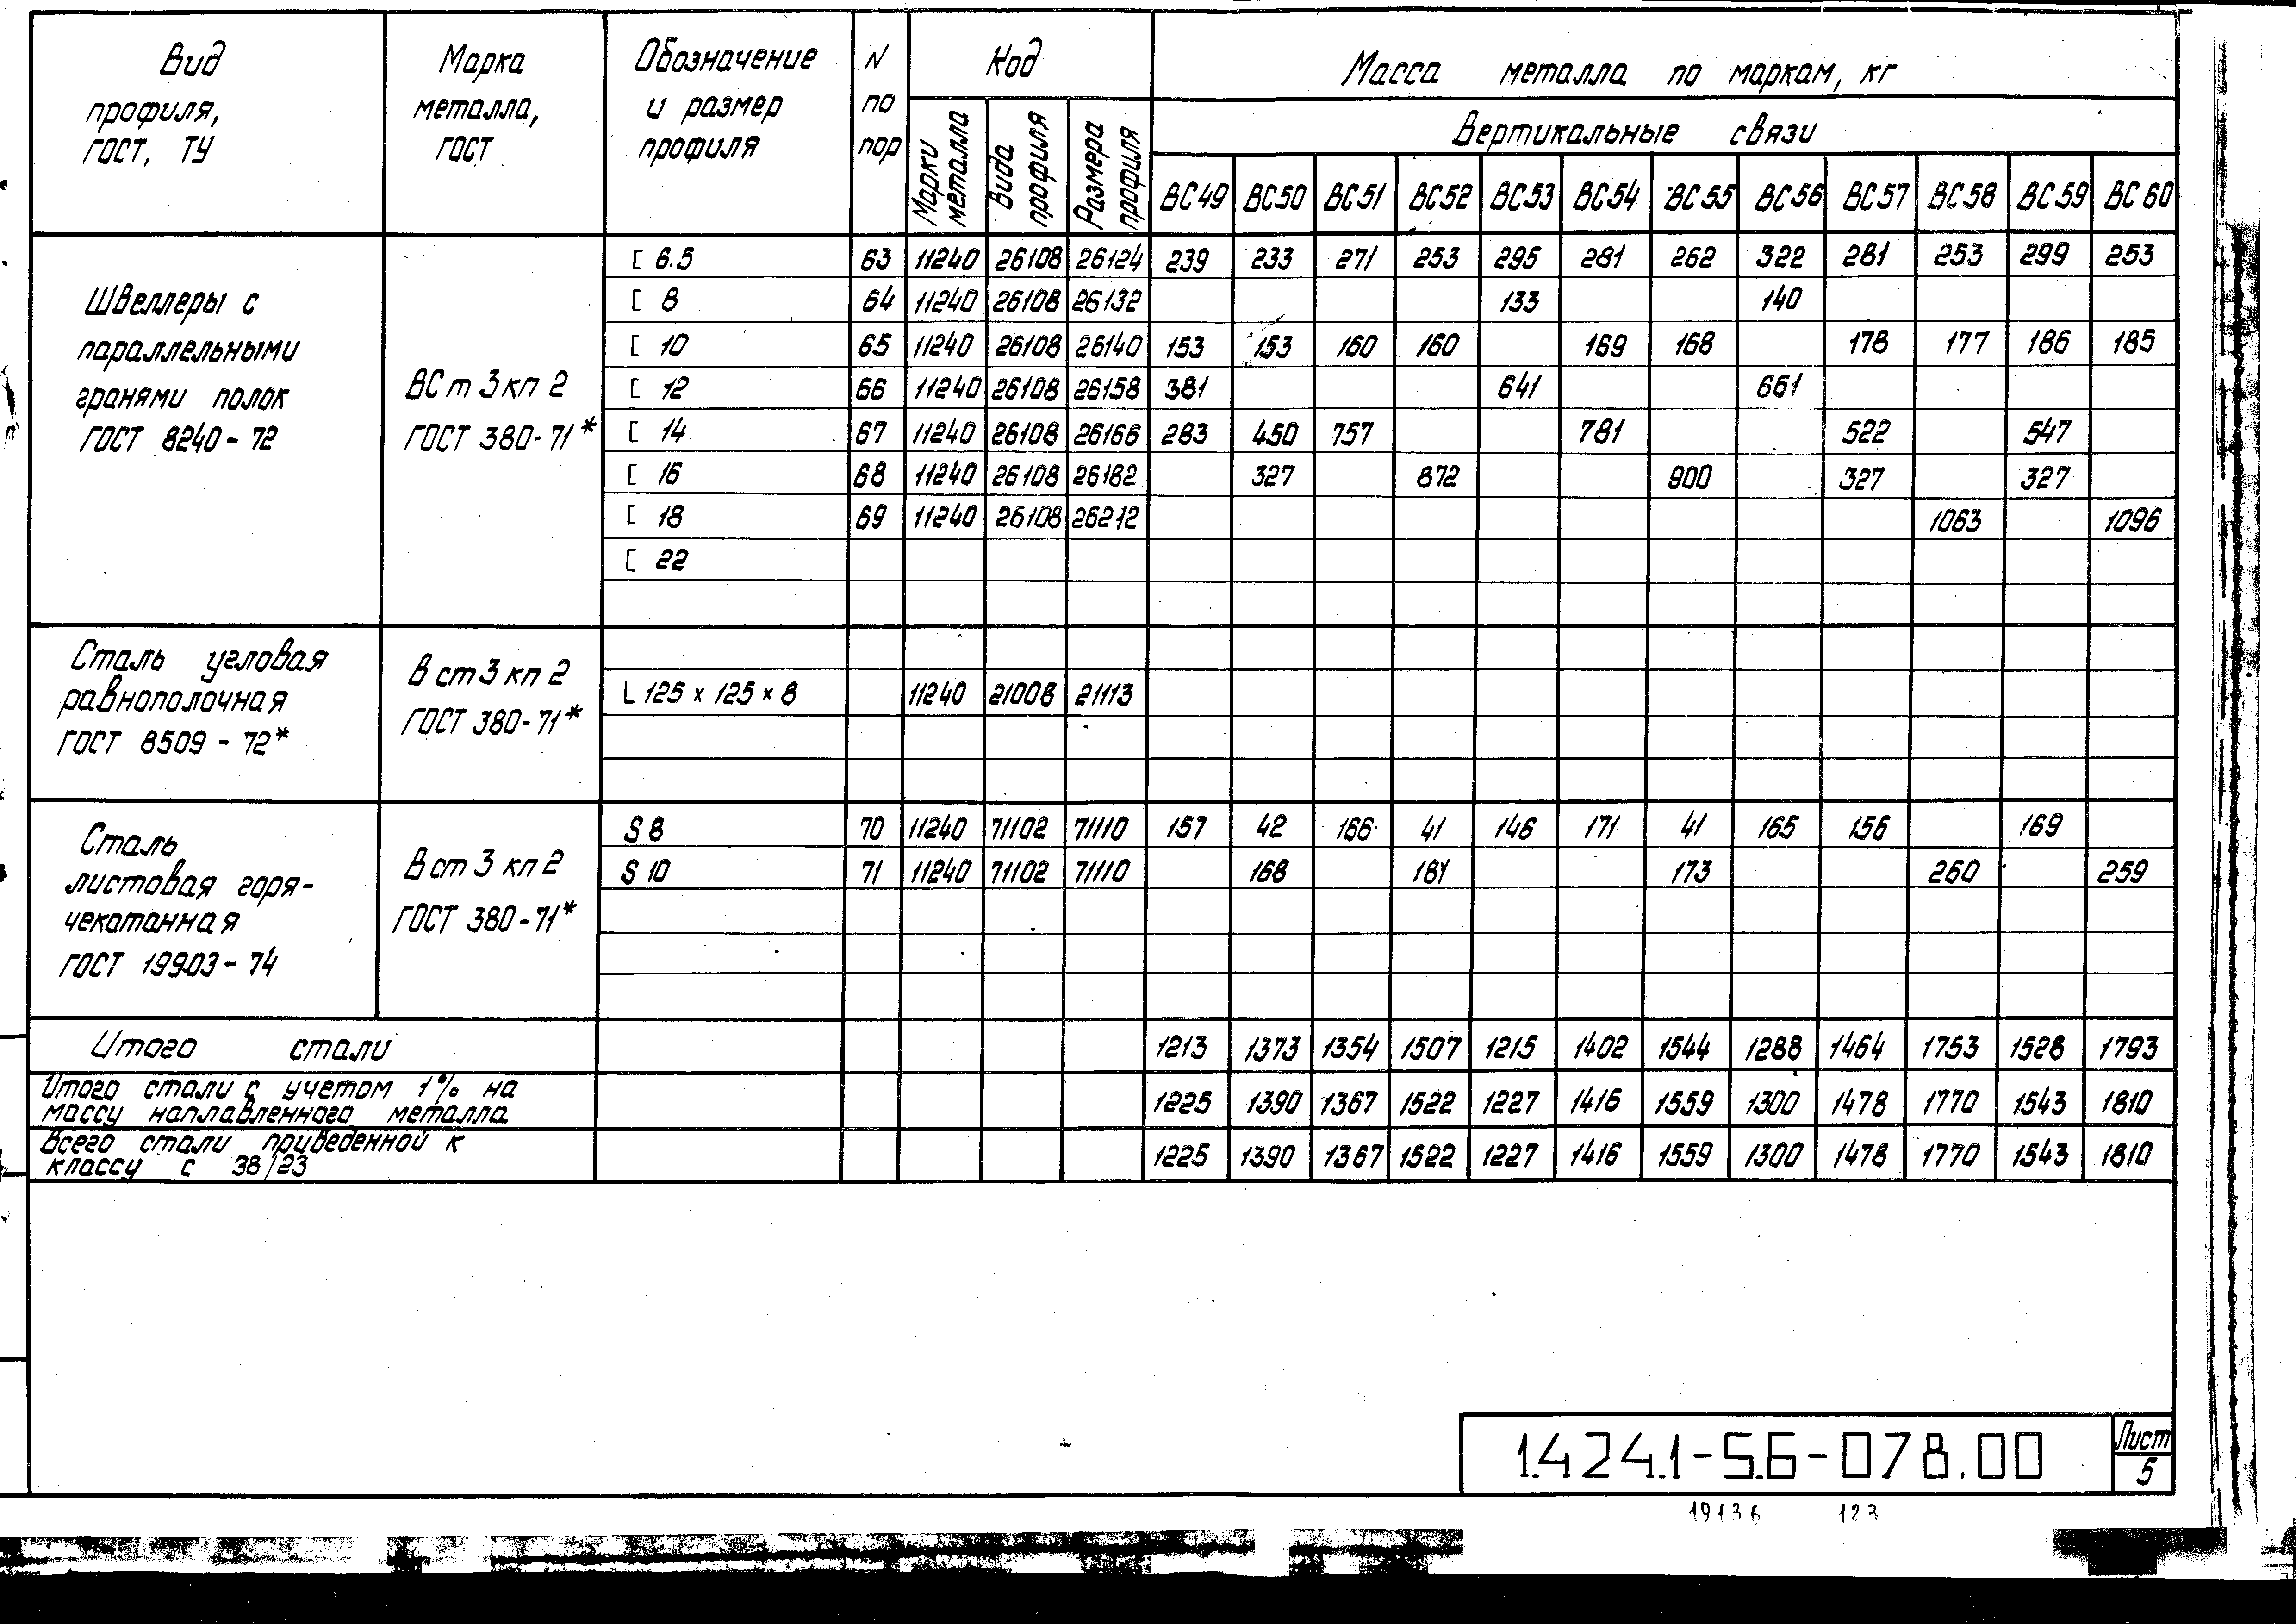 Вид профиля, ГОСТ, ТУ | Марка металла, ГОСТ | Обозначение и размер профиля | N по пор | Код | Масса металла по маркам, кг
Марки металла | Вида профиля | Размера профиля | Вертикальные связи
ВС49 ВС50 ВС51 ВС52 ВС53 ВС54 ВС55 ВС56 ВС57 ВС58 ВС59 ВС60
Швеллеры с
параллельными
гранями полок
ГОСТ 8240-72
ВСт3кп2
ГОСТ 380-71*
[ 6.5 63 11240 26108 26124 239 233 271 253 295 281 262 322 281 253 299 253
[ 8 64 11240 26108 26132 133 140
[ 10 65 11240 26108 26140 153 153 160 160 169 168 178 177 186 185
[ 12 66 11240 26108 26158 381 641 661
[ 14 67 11240 26108 26166 283 450 757 781 522 547
[ 16 68 11240 26108 26182 327 872 900 327 327
[ 18 69 11240 26108 26212 1063 1096
[ 22
Сталь угловая
равнополочная
ГОСТ 8509-72*
Вст3кп2
ГОСТ 380-71*
L 125 x 125 x 8 11240 21008 21113
Сталь
листовая горя-
чекатанная
ГОСТ 19903-74
Вст3кп2
ГОСТ 380-71*
S 8 70 11240 71102 71110 157 42 166 41 146 171 41 165 156 169
S 10 71 11240 71102 71110 168 181 173 260 259
Итого стали 1213 1373 1354 1507 1215 1402 1544 1288 1464 1753 1528 1793
Итого стали с учетом 1% на
массу наплавленного металла 1225 1390 1367 1522 1227 1416 1559 1300 1478 1770 1543 1810
Всего стали приведенной к
классу с 38/23 1225 1390 1367 1522 1227 1416 1559 1300 1478 1770 1543 1810
1.424.1-5.6-078.00
Лист
5
19136 123